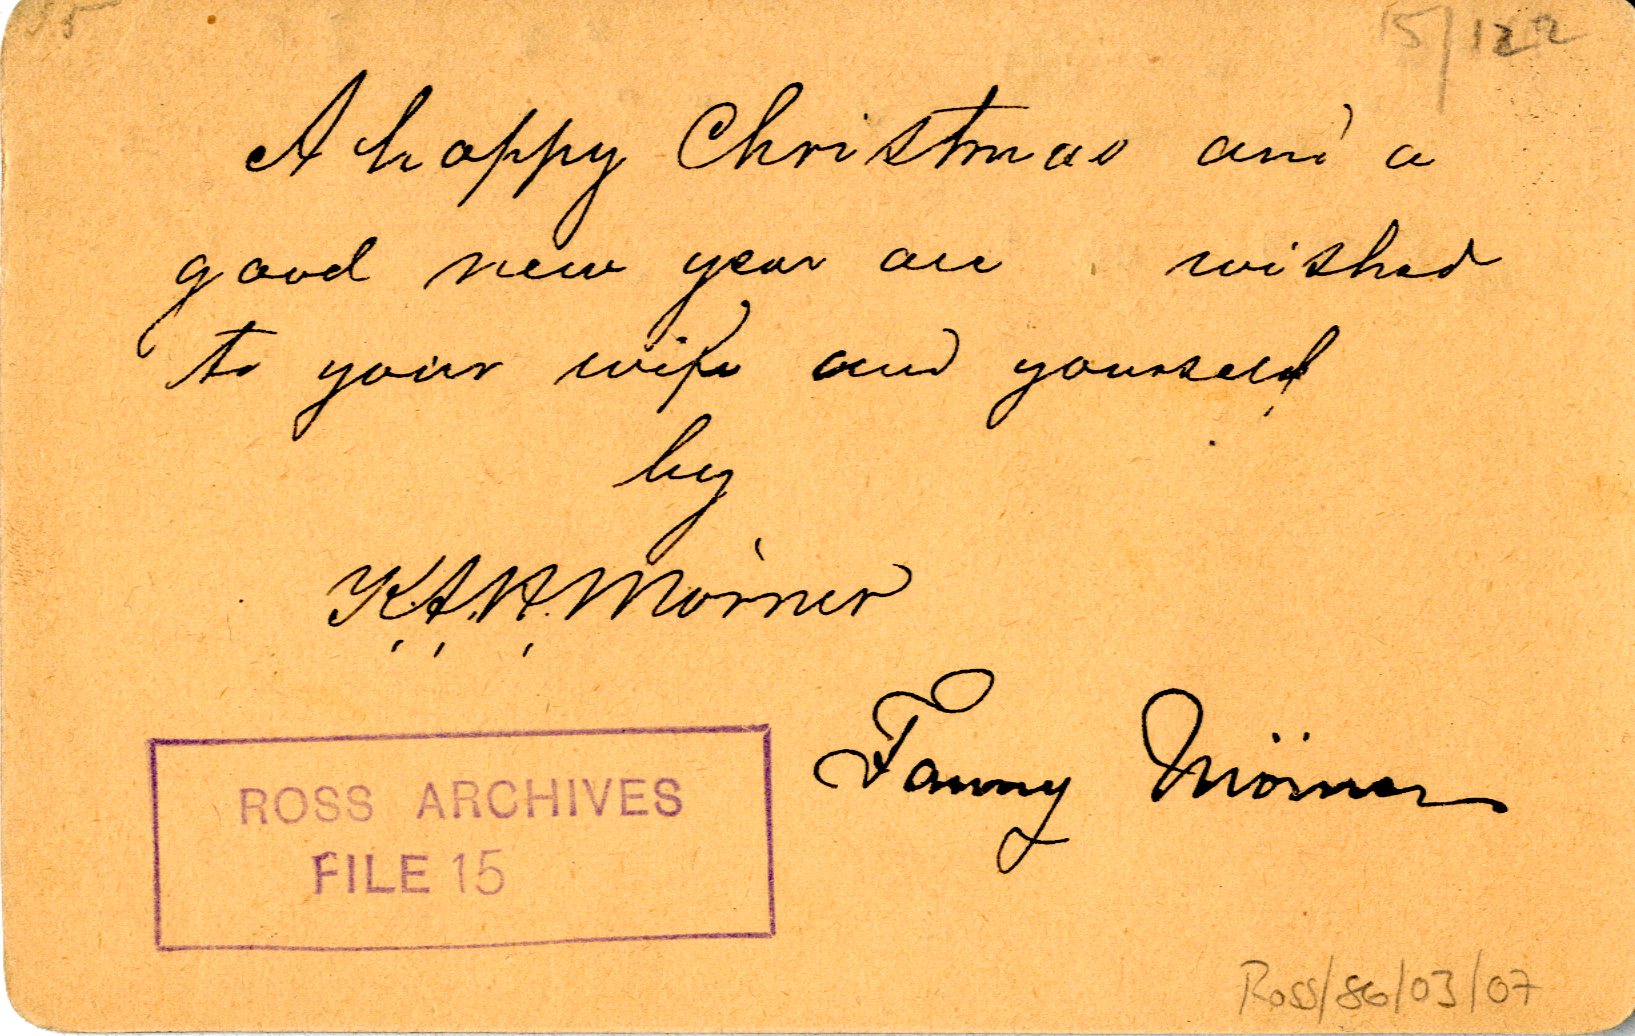 15/122
A happy Christmas and a
good new year are wished
to your wife and yourself
by
K.A.H. Mörner
Fanny Mörner
ROSS ARCHIVES
FILE 15
Ross/86/03/07